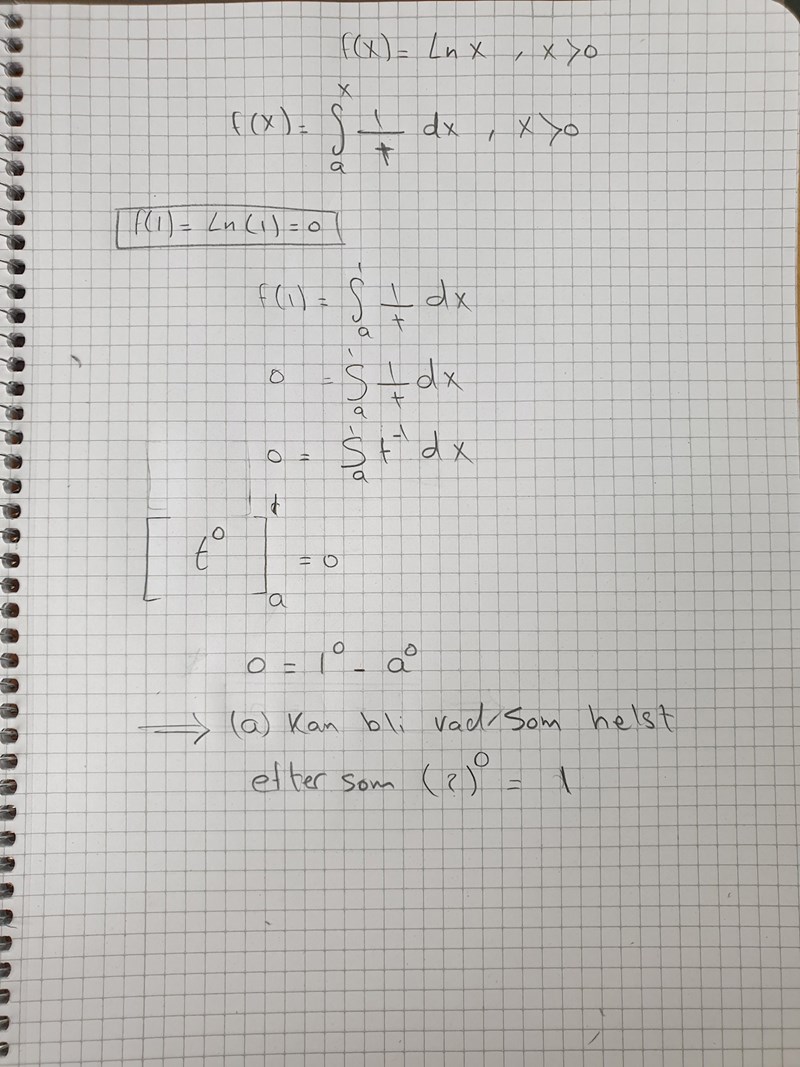 f(x) = Ln x , x>0
f(x) = ∫ₐˣ 1/t dx , x>0
f(1) = Ln (1) = 0
f(1) = ∫ₐ¹ 1/t dx
0 = ∫ₐ¹ 1/t dx
0 = ∫ₐ¹ t⁻¹ dx
[ t⁰ ]ₐ¹ = 0
0 = 1⁰ - a⁰
⟹ (a) Kan bli vad som helst
efter som (?)⁰ = 1